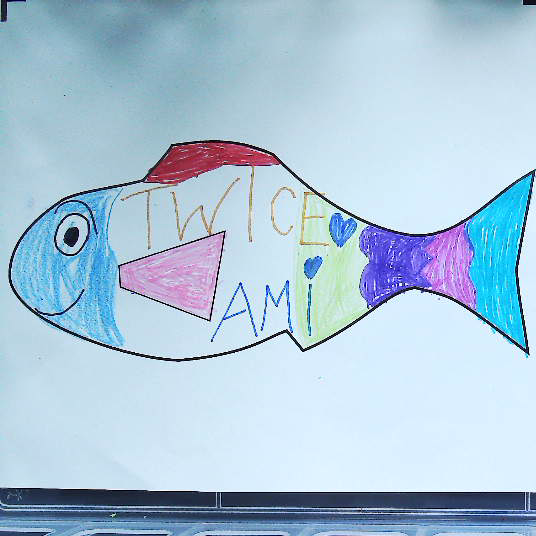 TWICE
AMi